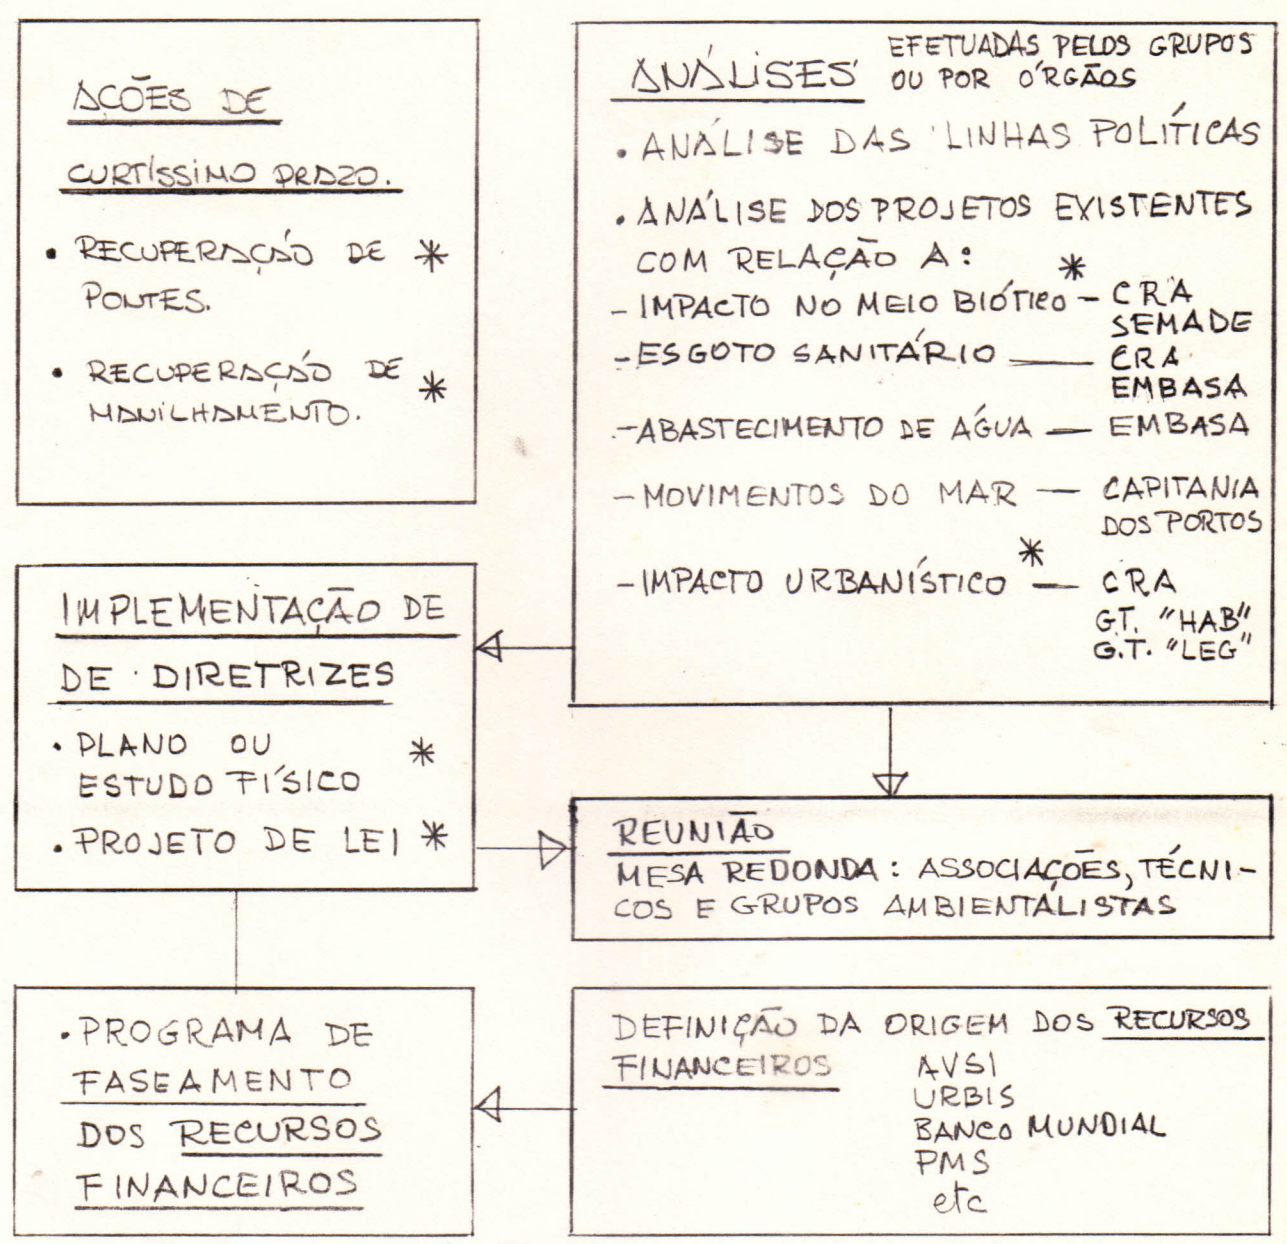 AÇÕES DE
CURTÍSSIMO PRAZO.
• RECUPERAÇÃO DE *
PONTES.
• RECUPERAÇÃO DE *
MANILHAMENTO.
ANÁLISES EFETUADAS PELOS GRUPOS
OU POR ÓRGÃOS
• ANÁLISE DAS LINHAS POLÍTICAS
• ANÁLISE DOS PROJETOS EXISTENTES
COM RELAÇÃO A:
- IMPACTO NO MEIO BIÓTICO * - CRA
SEMADE
- ESGOTO SANITÁRIO — CRA
EMBASA
- ABASTECIMENTO DE ÁGUA — EMBASA
- MOVIMENTOS DO MAR — CAPITANIA
DOS PORTOS
- IMPACTO URBANÍSTICO * — CRA
GT. "HAB"
G.T. "LEG"
IMPLEMENTAÇÃO DE
DE DIRETRIZES
• PLANO OU *
ESTUDO FÍSICO
• PROJETO DE LEI *
REUNIÃO
MESA REDONDA: ASSOCIAÇÕES, TÉCNI-
COS E GRUPOS AMBIENTALISTAS
• PROGRAMA DE
FASEAMENTO
DOS RECURSOS
FINANCEIROS
DEFINIÇÃO DA ORIGEM DOS RECURSOS
FINANCEIROS AVSI
URBIS
BANCO MUNDIAL
PMS
etc